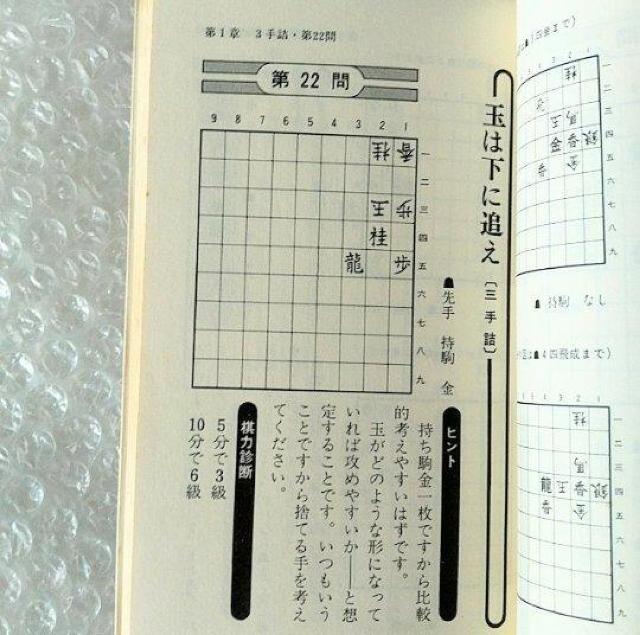 第1章 3手詰・第22問
第 22 問
玉は下に追え
〔三手詰〕
9 8 7 6 5 4 3 2 1
桂 香
玉 歩
桂
龍 歩
一
二
三
四
五
六
七
八
九
先手 持駒 金
ヒント
持ち駒金一枚ですから比較
的考えやすいはずです。
玉がどのような形になって
いれば攻めやすいか――と想
定することです。いつもいう
ことですから捨てる手を考え
てください。
棋力診断
5分で3級
10分で6級
持駒 なし
4四飛成まで)